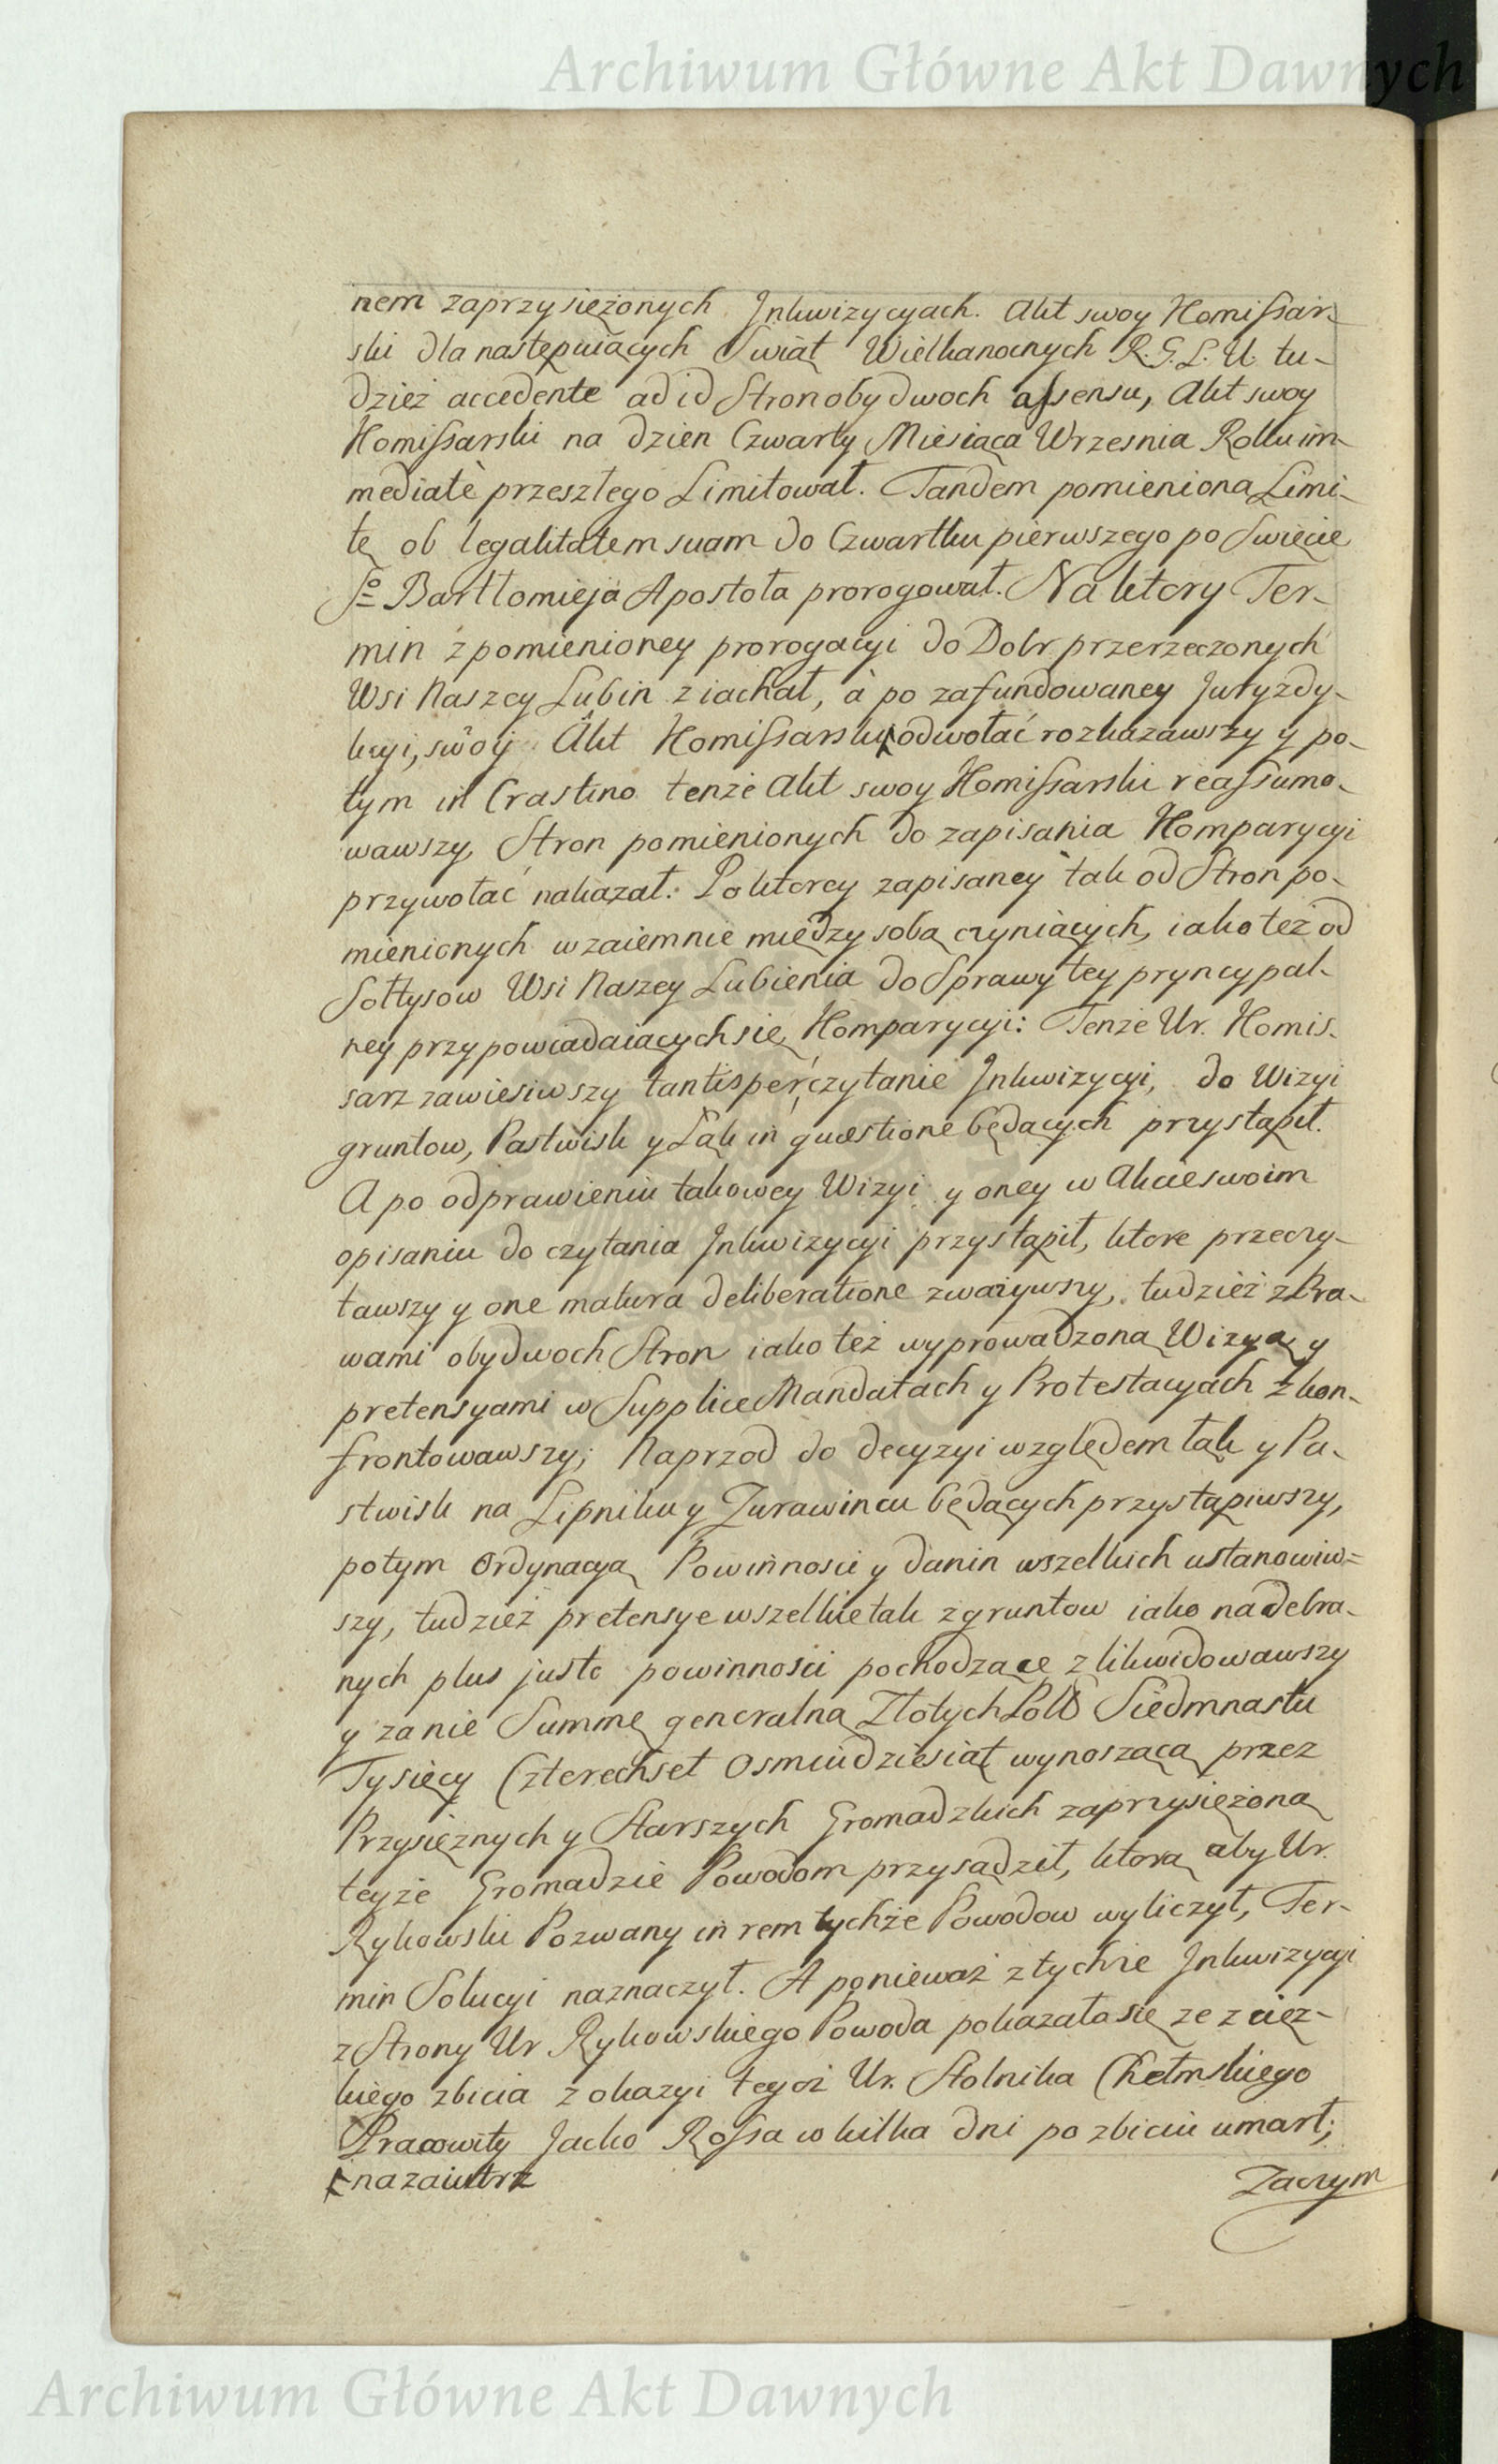 Archiwum Główne Akt Dawnych
nem zaprzysiężonych Inkwizycyach. Akt swoy Komissar-
ski dla następuiących Swiąt Wielkanocnych R.G.L.U. tu-
dzież accedente ad id Stron obydwoch assensu, Akt swoy
Komissarski na dzien Czwarty Miesiąca Wrzesnia Roku im-
mediatè przeszłego Limitował. Tandem pomienioną Limi-
tę ob legalitatem suam do Czwartku pierwszego po Swięcie
Sº Bartłomieja Apostoła prorogował. Na ktory Ter-
min z pomienioney prorogacyi do Dobr przerzeczonych
Wsi Naszey Lubin ziachał, à po zafundowaney Juryzdy-
kcyi, swoy Akt Komissarski odwołać rozkazawszy y po-
tym in Crastino tenże Akt swoy Komissarski reassumo-
wawszy, Stron pomienionych do zapisania Komparycyi
przywołać nakazał: Po ktorey zapisaney tak od Stron po-
mienionych wzaiemnie między sobą czyniących, iako też od
Sołtysow Wsi Naszey Lubienia do Sprawy tey pryncypal-
ney przypowiadaiących się Komparycyi: Tenże Ur. Komis-
sarz zawiesiwszy tantisper czytanie Inkwizycyi, do Wizyi
gruntow, Pastwisk y Łąk in quæstione będących przystąpił.
A po odprawieniu takowey Wizyi y oney w Akcie swoim
opisaniu do czytania Inkwizycyi przystąpił, ktore przeczy-
tawszy y one matura deliberatione zważywszy, tudzież z Pra-
wami obydwoch Stron iako też wyprowadzoną Wizyą y
pretensyami w Supplice Mandatach y Protestacyach zkon-
frontowawszy; Naprzod do decyzyi względem łąk y Pa-
stwisk na Lipniku y Zurawincu będących przystąpiwszy,
potym Ordynacyą Powinnosci y danin wszelkich ustanowiw=
szy, tudzież pretensye wszelkie tak z gruntow iako nadebra-
nych plus justo powinności pochodzące zlikwidowawszy
y zanie Summę generalną Złotych Pols Siedmnastu
Tysięcy Czterechset Osmiudziesiąt wynoszącą przez
Przysiężnych y Starszych Gromadzkich zaprzysiężoną
teyże Gromadzie Powodom przysądził, ktorą aby Ur.
Rykowski Pozwany in rem tychże Powodow wyliczył, Ter-
min Solucyi naznaczył. A ponieważ z tychże Inkwizycyi
z Strony Ur Rykowskiego Powoda pokazało się ze z cięż-
kiego zbicia z okazyi tegoż Ur. Stolnika Chełmskiego
Pracowity Jacko Rossa w kilka dni po zbiciu umarł;
nazaiutrz
Zaczym
Archiwum Główne Akt Dawnych